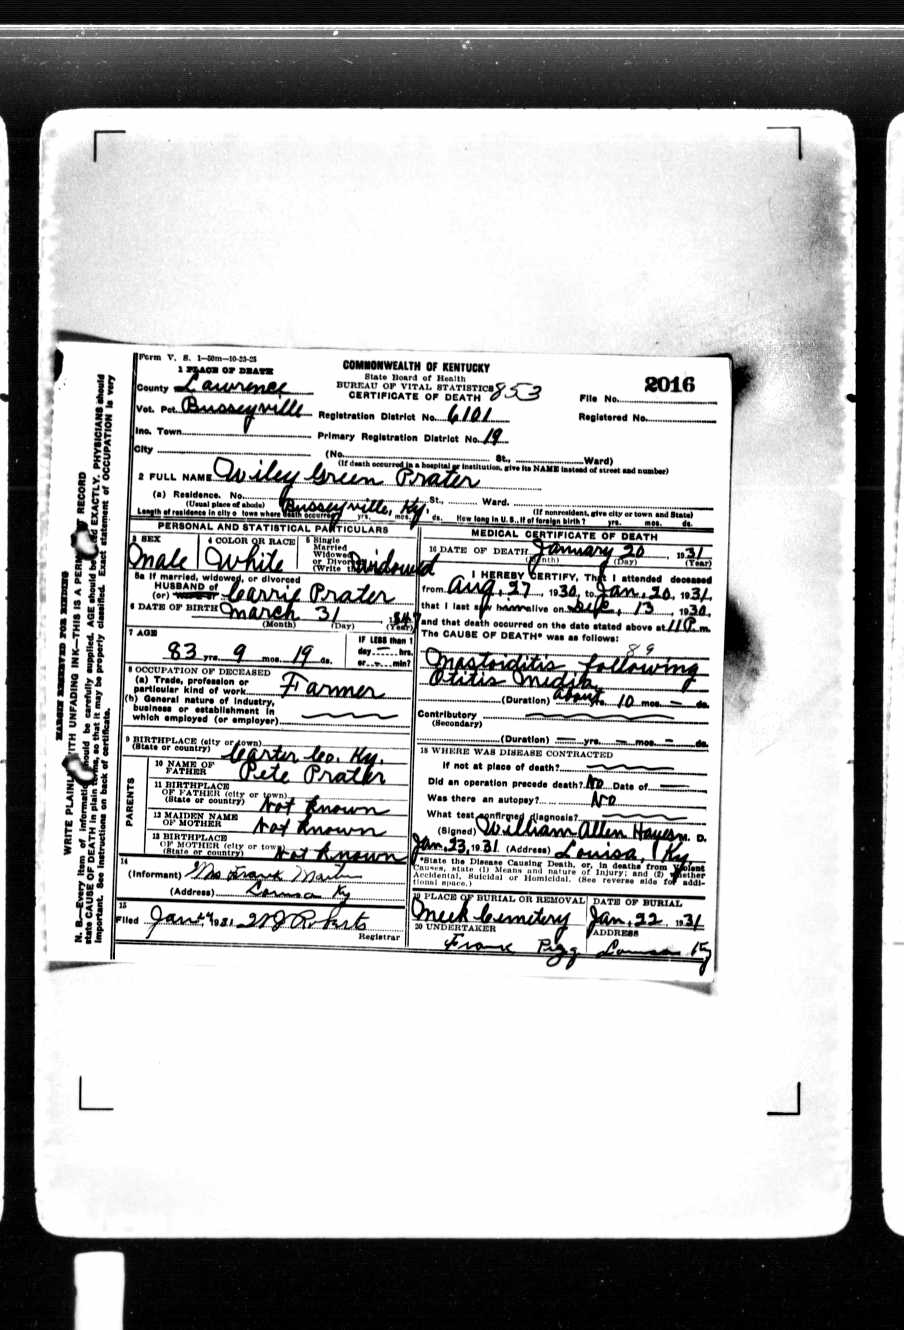 Form V. S. 1—50m—10-23-25
1 PLACE OF DEATH
County Lawrence
Vot. Pct. Busseyville
Inc. Town
City
COMMONWEALTH OF KENTUCKY
State Board of Health
BUREAU OF VITAL STATISTICS 853
CERTIFICATE OF DEATH
Registration District No. 6101
Primary Registration District No. 19
File No. 2016
Registered No.
(No. St., Ward)
(If death occurred in a hospital or institution, give its NAME instead of street and number)
2 FULL NAME Wiley Green Prater
(a) Residence. No. Busseyville, Ky. St., Ward.
(Usual place of abode) (If nonresident, give city or town and State)
Length of residence in city or town where death occurred yrs. mos. ds. How long in U. S., if of foreign birth? yrs. mos. ds.
PERSONAL AND STATISTICAL PARTICULARS
3 SEX
Male
4 COLOR OR RACE
White
5 Single
Married
Widowed
or Divorced
(Write the Widowed
5a If married, widowed, or divorced
HUSBAND of
(or) Carrie Prater
6 DATE OF BIRTH March 31, 1847
(Month) (Day) (Year)
7 AGE
83 yrs. 9 mos. 19 ds.
IF LESS than 1
day — hrs.
or min?
8 OCCUPATION OF DECEASED
(a) Trade, profession or
particular kind of work Farmer
(b) General nature of industry,
business or establishment in
which employed (or employer)
9 BIRTHPLACE (city or town)
(State or country) Carter Co. Ky.
PARENTS
10 NAME OF
FATHER Pete Prater
11 BIRTHPLACE
OF FATHER (city or town)
(State or country) Not Known
12 MAIDEN NAME
OF MOTHER Not Known
13 BIRTHPLACE
OF MOTHER (city or town)
(State or country) Not Known
14
(Informant) Mrs Frank Martin
(Address) Louisa Ky
15
Filed Jan 1931
Roberts
Registrar
MEDICAL CERTIFICATE OF DEATH
16 DATE OF DEATH January 20, 1931
(Month) (Day) (Year)
I HEREBY CERTIFY, That I attended deceased
from Aug. 27, 1930, to Jan. 20, 1931,
that I last saw him alive on Dec. 13, 1930,
and that death occurred on the date stated above at 11 P. m.
The CAUSE OF DEATH* was as follows:
89
Mastoiditis following
Otitis Media
(Duration) about yrs. 10 mos. — ds.
Contributory
(Secondary)
(Duration) — yrs. — mos. — ds.
18 WHERE WAS DISEASE CONTRACTED
If not at place of death?
Did an operation precede death? No Date of —
Was there an autopsy? No
What test confirmed diagnosis?
(Signed) William Allen Hayes M. D.
Jan. 23, 1931 (Address) Louisa, Ky.
*State the Disease Causing Death, or, in deaths from Violent
Causes, state (1) Means and nature of Injury; and (2) whether
Accidental, Suicidal or Homicidal. (See reverse side for addi-
tional space.)
19 PLACE OF BURIAL OR REMOVAL
Meek Cemetery
DATE OF BURIAL
Jan. 22, 1931
20 UNDERTAKER
Frank Pigg
ADDRESS
Louisa Ky
MARGIN RESERVED FOR BINDING
WRITE PLAINLY WITH UNFADING INK—THIS IS A PERMANENT RECORD
N. B.—Every item of information should be carefully supplied. AGE should be stated EXACTLY. PHYSICIANS should
state CAUSE OF DEATH in plain terms, so that it may be properly classified. Exact statement of OCCUPATION is very
important. See instructions on back of certificate.